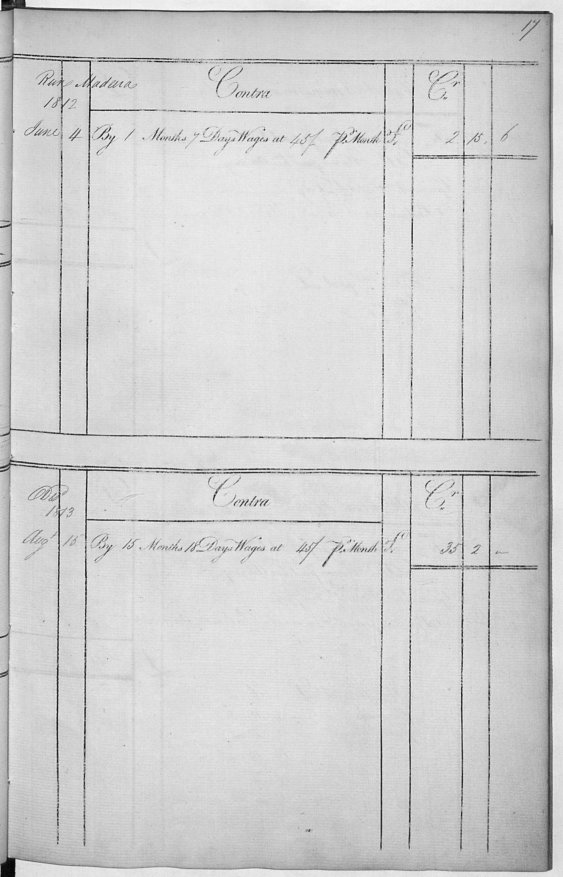 17
Run Madeira Contra Cr
1812
June 4 By 1 Months 7 Days Wages at 45/ Pr Month £ 2 15 6
Contra Cr
1813
Augt 15 By 15 Months 18 Days Wages at 45/ Pr Month £ 35 2 "